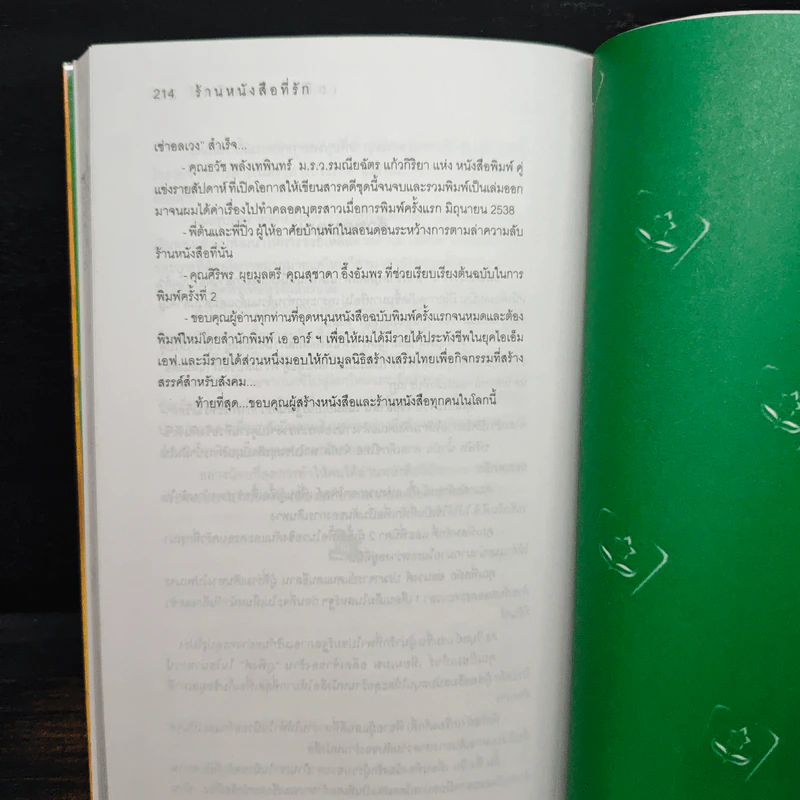 214 ร้านหนังสือที่รัก
เช่าอลเวง" สำเร็จ...
- คุณธวัช พลังเทพินทร์ ม.ร.ว.รมณียฉัตร แก้วกิริยา แห่ง หนังสือพิมพ์ คู่
แข่งรายสัปดาห์ที่เปิดโอกาสให้เขียนสารคดีชุดนี้จนจบและรวมพิมพ์เป็นเล่มออก
มาจนผมได้ค่าเรื่องไปทำคลอดบุตรสาวเมื่อการพิมพ์ครั้งแรก มิถุนายน 2538
- พี่ต้นและพี่บิ๋ว ผู้ให้อาศัยบ้านพักในลอนดอนระหว่างการตามล่าความลับ
ร้านหนังสือที่นั่น
- คุณศิริพร ผุยมูลตรี คุณสุชาดา อึ๊งอัมพร ที่ช่วยเรียบเรียงต้นฉบับในการ
พิมพ์ครั้งที่ 2
- ขอบคุณผู้อ่านทุกท่านที่อุดหนุนหนังสือฉบับพิมพ์ครั้งแรกจนหมดและต้อง
พิมพ์ใหม่โดยสำนักพิมพ์ เอ อาร์ ฯ เพื่อให้ผมได้มีรายได้ประทังชีพในยุคไอเอ็ม
เอฟ.และมีรายได้ส่วนหนึ่งมอบให้กับมูลนิธิสร้างเสริมไทยเพื่อกิจกรรมที่สร้าง
สรรค์สำหรับสังคม...
ท้ายที่สุด...ขอบคุณผู้สร้างหนังสือและร้านหนังสือทุกคนในโลกนี้